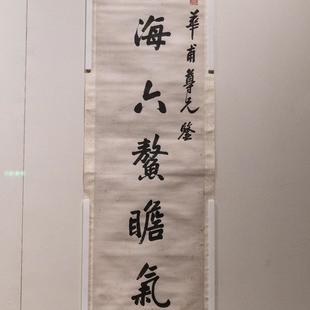 華甫尊兄鑒
海六鼇瞻氣